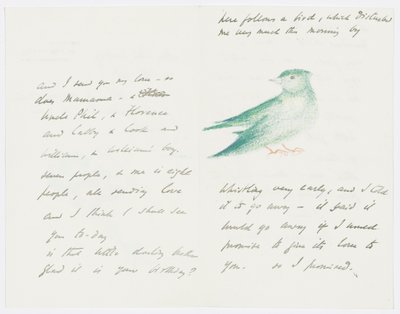 and I send you my love – so
does Mamama – &
Uncle Phil, & Florence
and Cathy & Cook and
William, & William's boy.
seven people, & me is eight
people, all sending love
and I think I shall see
you to-day
is that little darling
glad it is your birthday?
here follows a bird, which disturbed
me very much this morning by
whistling very early, and I told
it to go away – it said it
would go away if I would
promise to give its love to
you. so I promised.